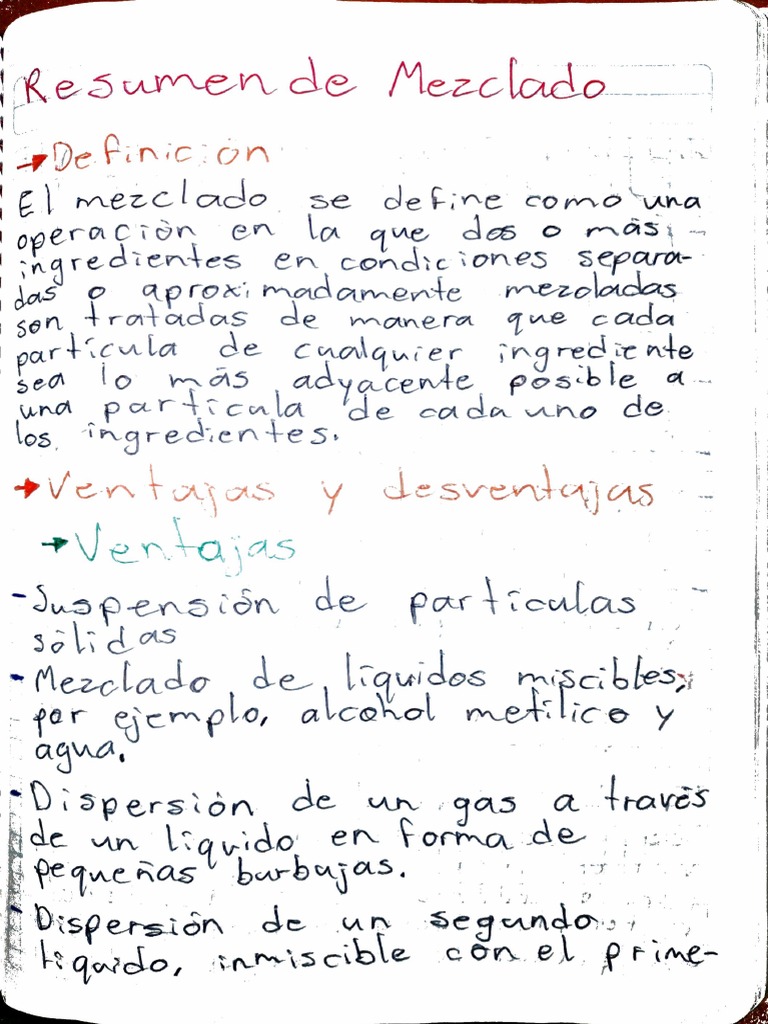 Resumen de Mezclado
→Definición
El mezclado se define como una
operación en la que dos o más
ingredientes en condiciones separa-
das o aproximadamente mezcladas
son tratadas de manera que cada
partícula de cualquier ingrediente
sea lo más adyacente posible a
una partícula de cada uno de
los ingredientes.
→Ventajas y desventajas
→Ventajas
-Suspensión de partículas
sólidas
-Mezclado de líquidos miscibles,
por ejemplo, alcohol metílico y
agua.
-Dispersión de un gas a través
de un líquido en forma de
pequeñas burbujas.
-Dispersión de un segundo
líquido, inmiscible con el prime-